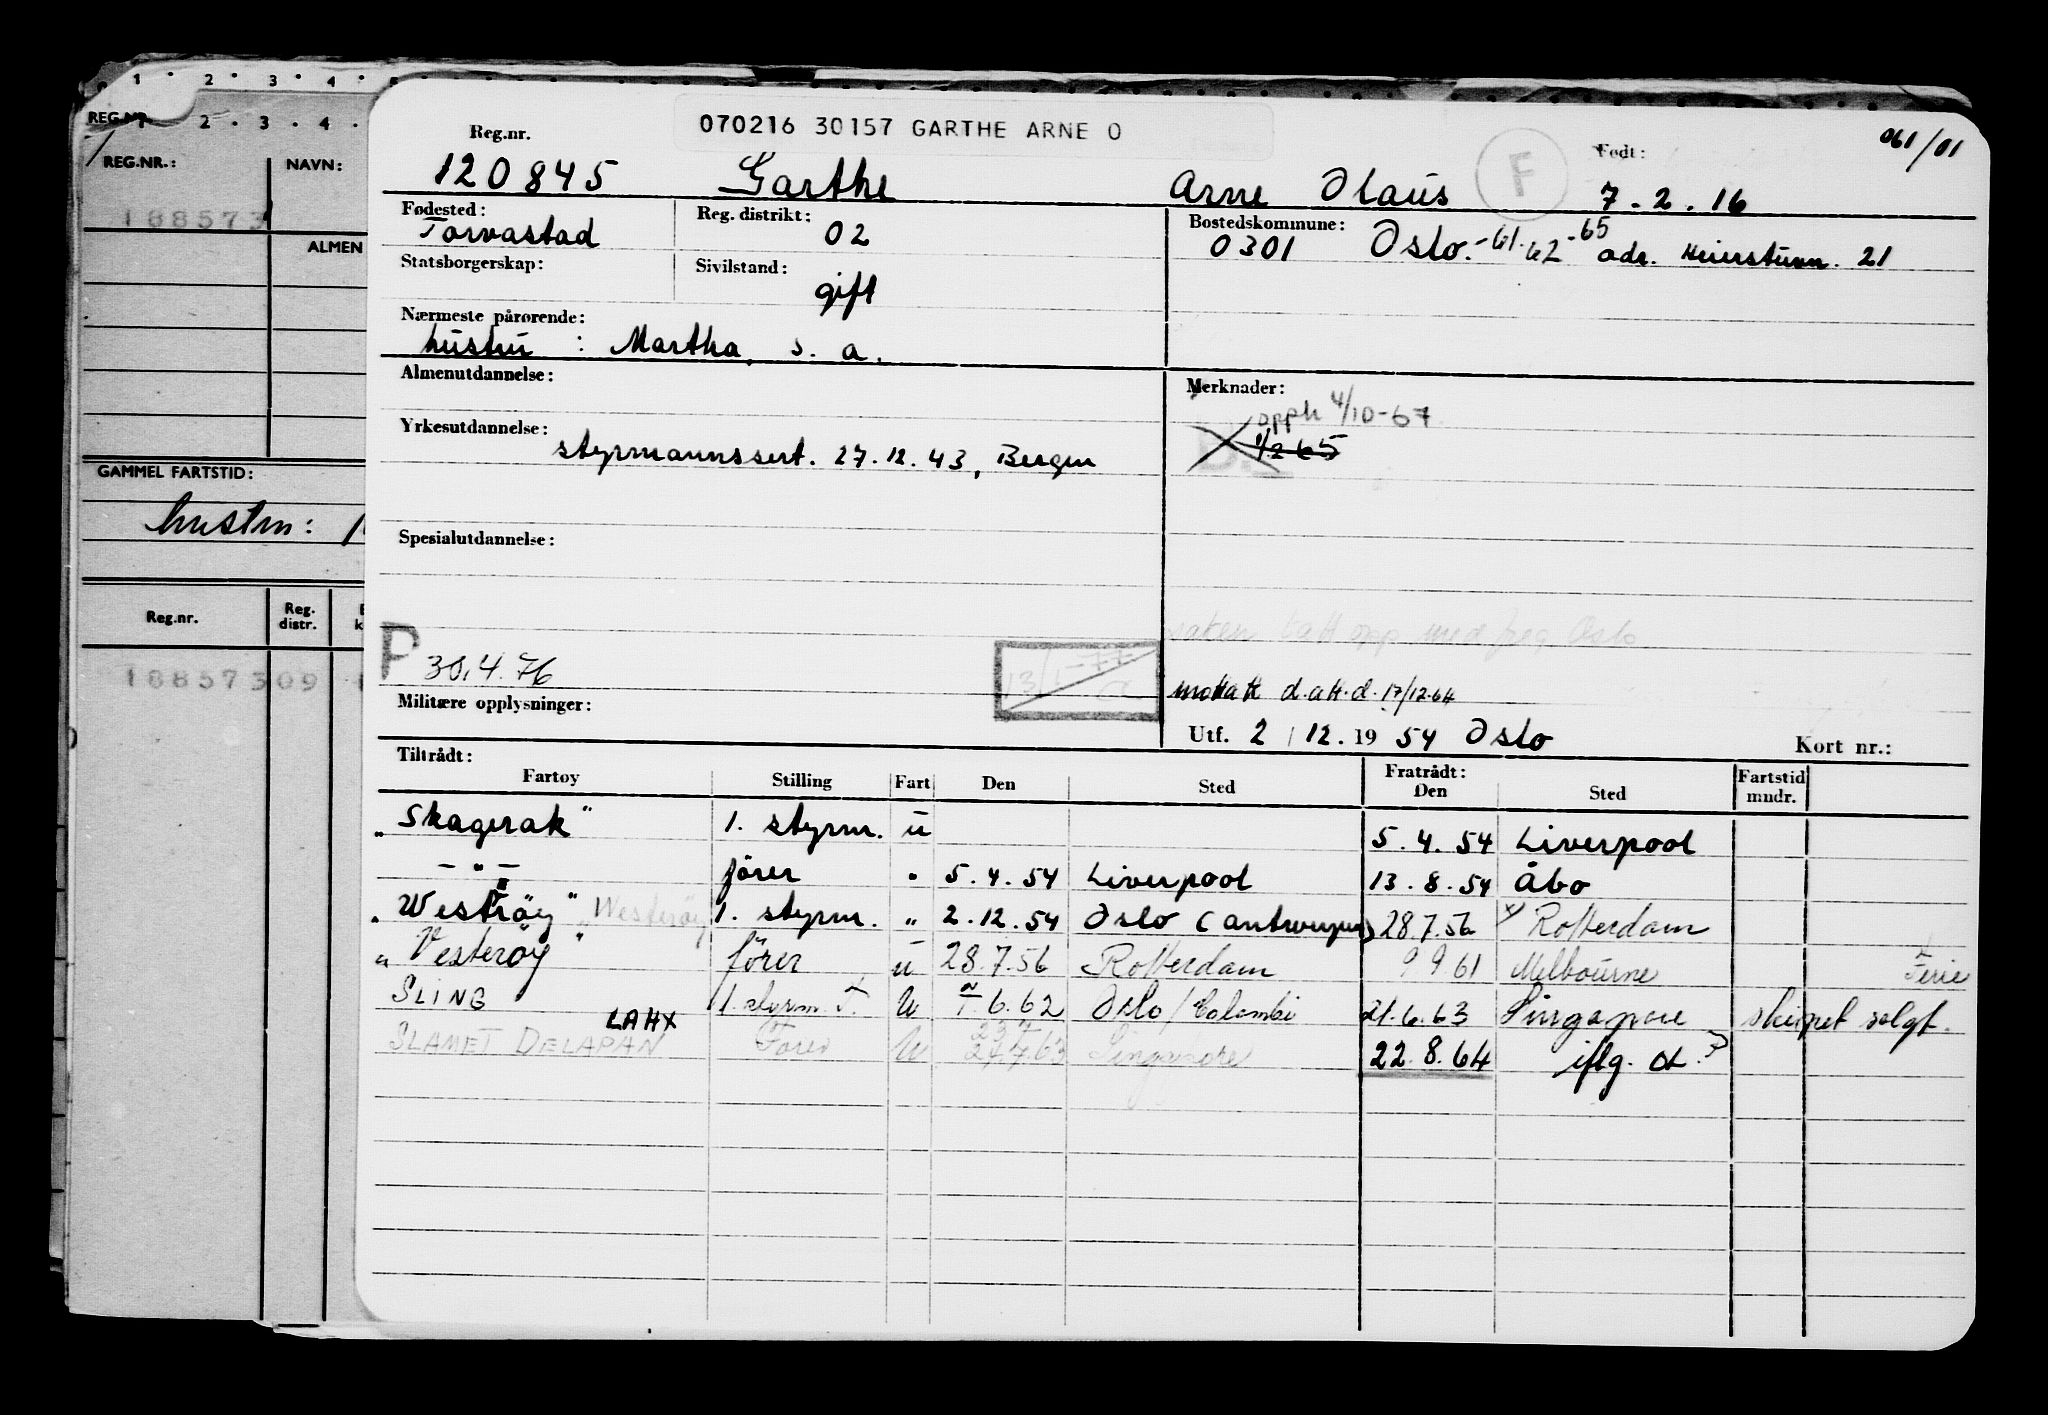 070216 30157 GARTHE ARNE O
061/01
Reg.nr. Født:
120845 Garthe Arne Olaus F 7.2.16
Fødested: Torvastad
Reg. distrikt: 02
Bostedskommune: 0301 Oslo. -61-62-65 adr. 21
Statsborgerskap:
Sivilstand: gift
Nærmeste pårørende:
hustru : Martha, s. a.
Almenutdannelse:
Merknader:
opph 4/10-67
1/2 65
Yrkesutdannelse:
styrmannssert. 27.12.43, Bergen
Spesialutdannelse:
saken tatt opp med freg Oslo
P 30.4.76
mottatt d.att.d. 17/12-64
Militære opplysninger:
Utf. 2 / 12. 19 54 Oslo Kort nr.:
Tiltrådt: Fratrådt: Fartstid
Fartøy Stilling Fart Den Sted Den Sted mndr.
"Skagerak" 1. styrm. u 5.4.54 Liverpool
-"- fører " 5.4.54 Liverpool 13.8.54 Åbo
"Westrøy" "Westerøy 1. styrm. " 2.12.54 Oslo (Antwerpen) 28.7.56 Rotterdam
"Vesterøy" fører u 28.7.56 Rotterdam 9 9.61 Melbourne Ferie
SLING 1. styrm. F. U 6.62 Oslo/Colombi 21.6.63 Singapore skipet solgt.
SLAMET DELAPAN LAHX Fører U 24.7.63 Singapore 22.8.64 iflg. a. ?
1 2 3 4
REG.NR.
1 2 3 4
REG.NR.: NAVN:
188573
ALMEN
GAMMEL FARTSTID:
hustru:
Reg.nr. Reg. distr.
18857309